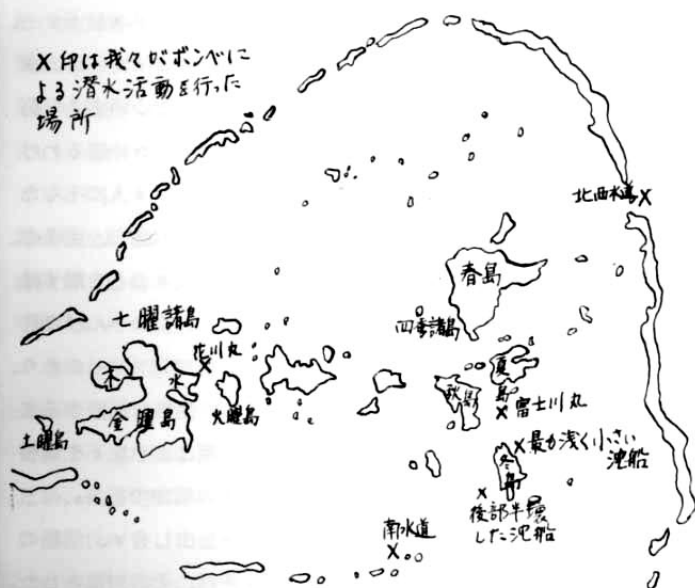 X印は我々がボンベに
よる潜水活動を行った
場所
北西水道X
春島
七曜諸島
四季諸島
花川丸
木
水
夏島
秋島
火曜島
金曜島
土曜島
X富士川丸
X最も浅く小さい
沈船
冬島
X
後部半壊
した沈船
南水道
X